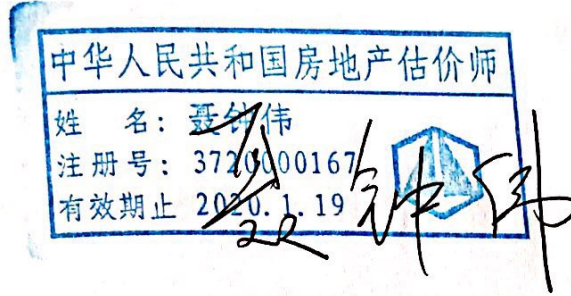 中华人民共和国房地产估价师
姓 名: 聂钟伟
注册号: 3720000167
有效期止 2020.1.19
聂钟伟